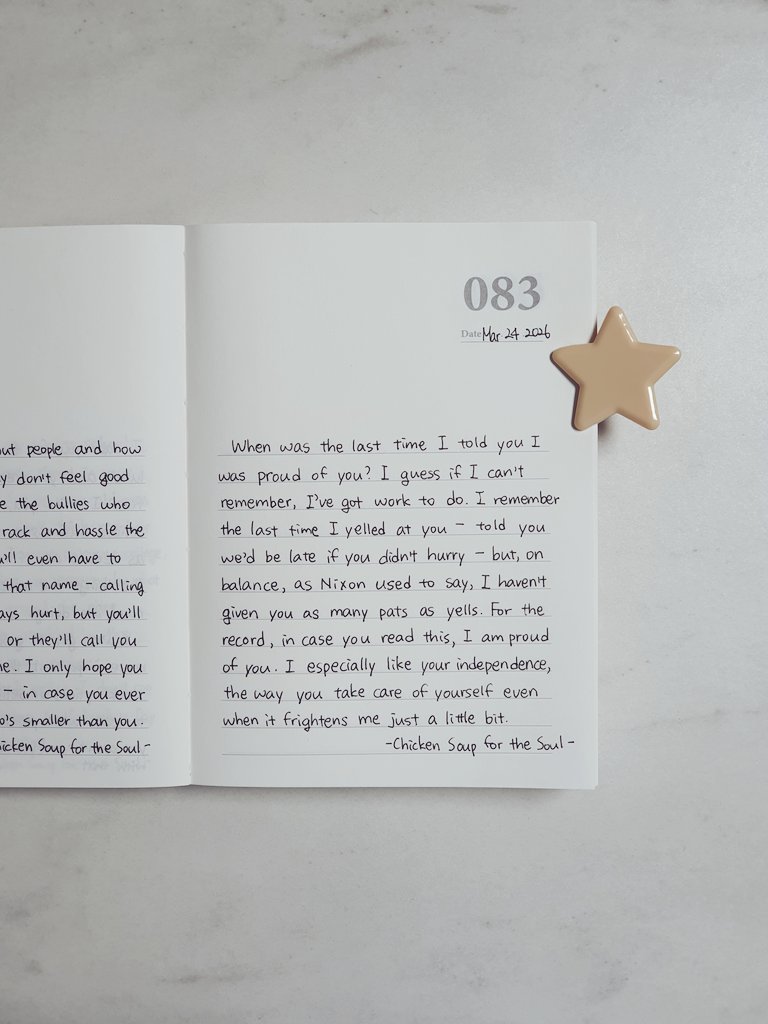 ut people and how
y don't feel good
e the bullies who
rack and hassle the
'll even have to
that name - calling
ays hurt, but you'll
or they'll call you
e. I only hope you
- in case you ever
o's smaller than you.
icken Soup for the Soul -
083
Date Mar 24 2026
When was the last time I told you I
was proud of you? I guess if I can't
remember, I've got work to do. I remember
the last time I yelled at you - told you
we'd be late if you didn't hurry - but, on
balance, as Nixon used to say, I haven't
given you as many pats as yells. For the
record, in case you read this, I am proud
of you. I especially like your independence,
the way you take care of yourself even
when it frightens me just a little bit.
-Chicken Soup for the Soul-